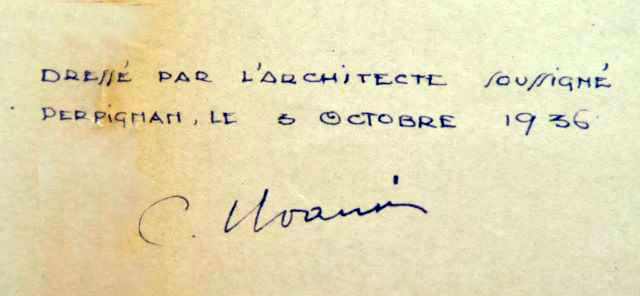 DRESSÉ PAR L'ARCHITECTE SOUSSIGNÉ
PERPIGNAN, LE 3 OCTOBRE 1936
C.